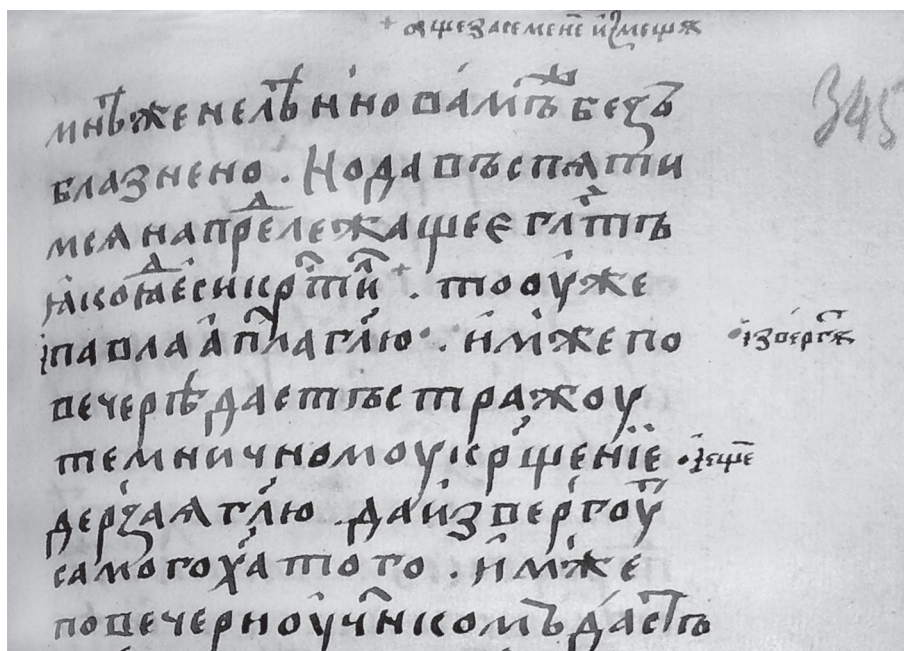 + ѻщезасемене ꙇизмещѧ
345
мнѣженелѣнно вамъ безъ
блазнено . Нодавъспѧти
мсѧнапрележащеє гл҃тъ
ꙗкоꙗдесикр҃тїи + . тооуже
павлаап҃лагл҃ю . имже по
ꙇзвергѧ
вечерѣдастъстражоу
темничномоукр҃щенїе
ꙇеще
дерзаѧгл҃ю . даизвергоу
самогох҃атого . имже
повечерноуч҃нкомъдастъ